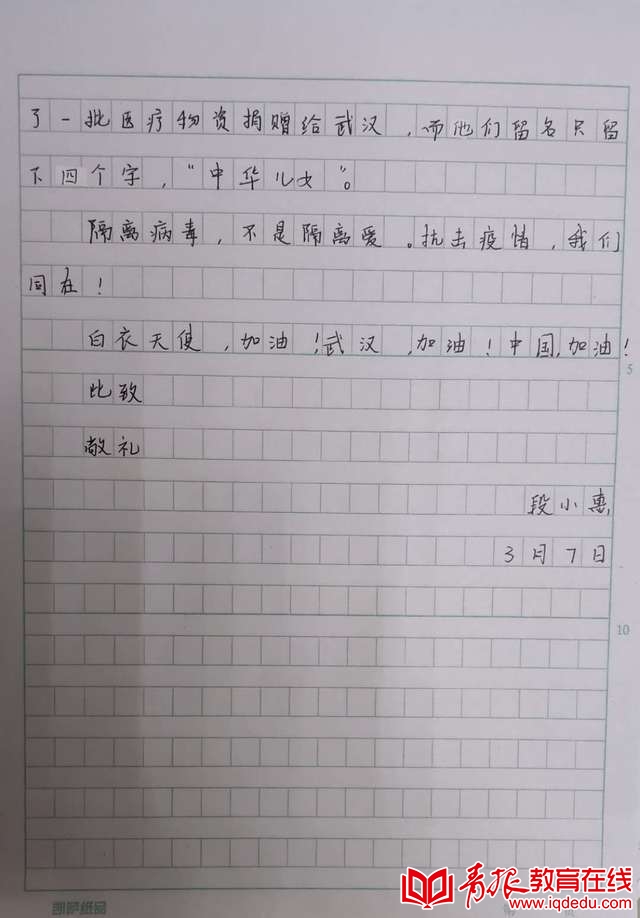 了一批医疗物资捐赠给武汉，而他们留名只留
下四个字，“中华儿女”。
隔离病毒，不是隔离爱。抗击疫情，我们
同在！
白衣天使，加油！武汉，加油！中国，加油！
5
比致
敬礼
段小惠
3月7日
10
凯萨纸品
青报教育在线
www.iqdedu.com